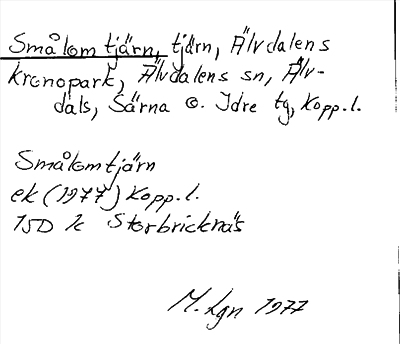 Smålomtjärn, tjärn, Älvdalens
kronopark, Älvdalens sn, Älv-
dals, Särna o. Idre tg, Kopp.l.
Smålomtjärn
ek (1977) Kopp.l.
15D 1c Storbricknäs
M. Lgn 1977